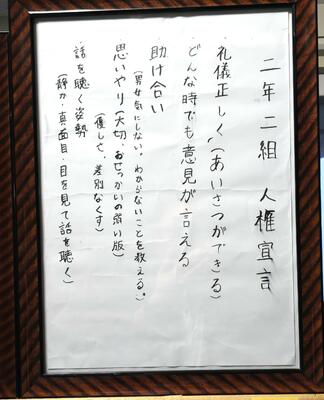 二年二組 人権宣言
礼儀正しく(あいさつができる)
どんな時でも意見が言える
助け合い
(男女気にしない。わからないことを教える。)
思いやり(大切、おせっかいの弱い版)
(優しさ、差別なくす)
話を聴く姿勢
(静か・真面目・目を見て話を聴く)